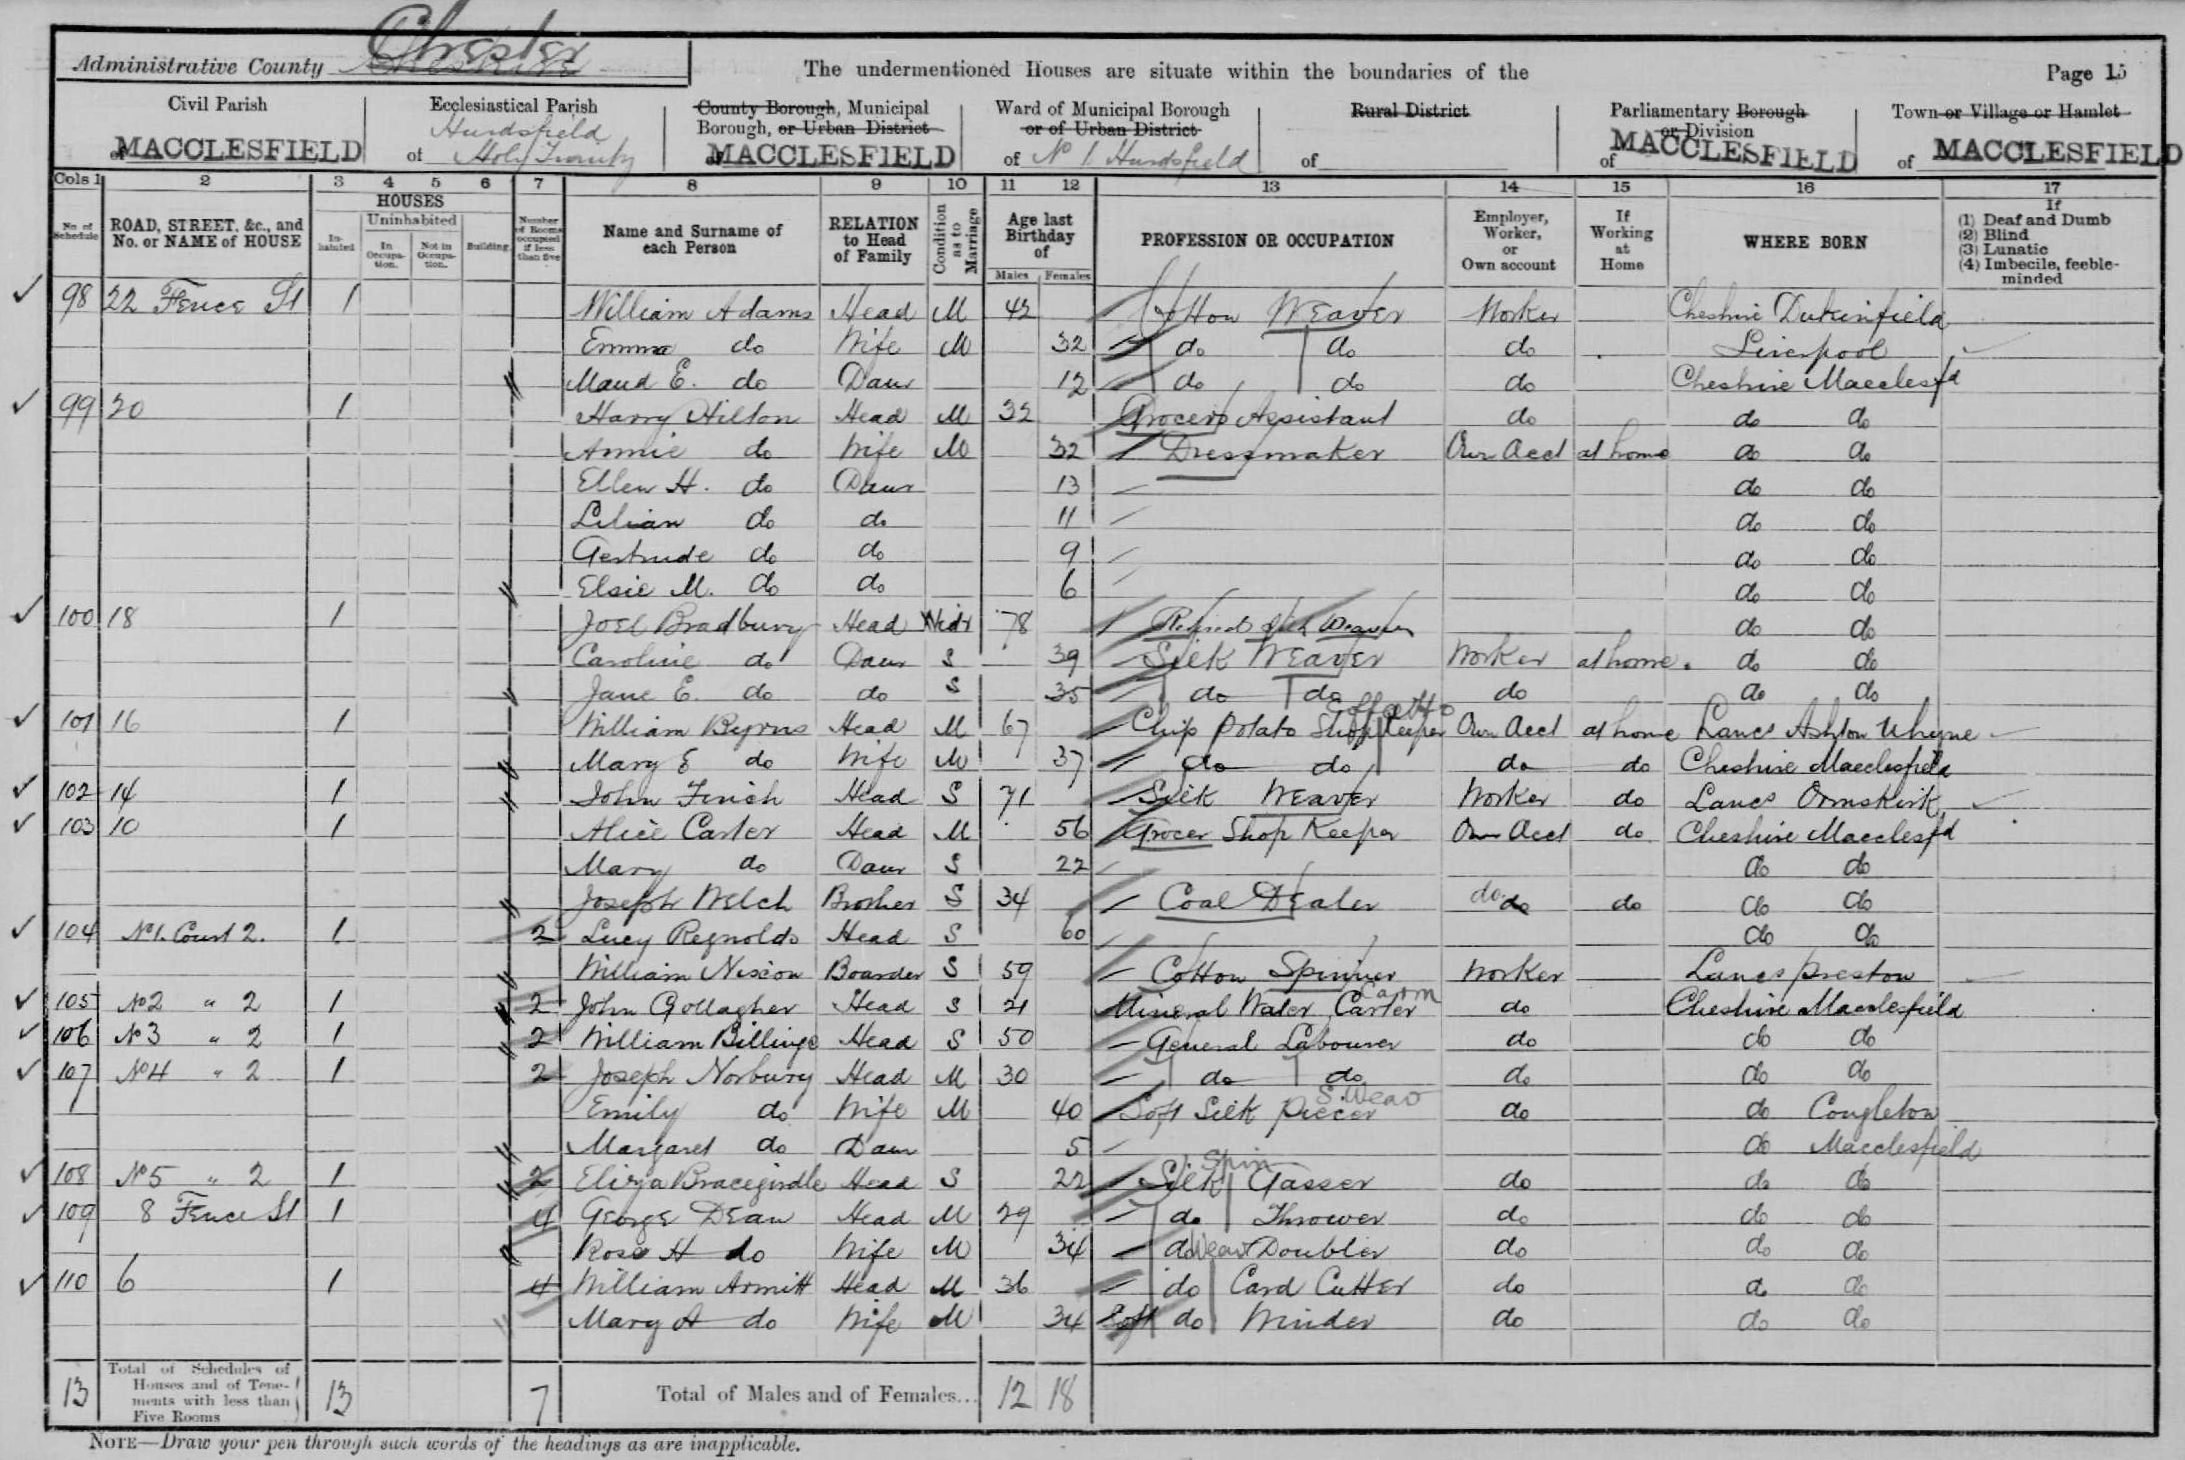 Administrative County Cheshire Chester
The undermentioned Houses are situate within the boundaries of the
Page 15
Civil Parish of MACCLESFIELD
Ecclesiastical Parish of Hurdsfield Holy Trinity
County Borough, Municipal Borough, or Urban District of MACCLESFIELD
Ward of Municipal Borough or of Urban District of No 1 Hurdsfield
Rural District of
Parliamentary Borough or Division of MACCLESFIELD
Town or Village or Hamlet of MACCLESFIELD
Cols 1 2 3 4 5 6 7 8 9 10 11 12 13 14 15 16 17
No of Schedule
ROAD, STREET, &c., and No. or NAME of HOUSE
HOUSES
Inhabited
Uninhabited
In Occupation.
Not in Occupation.
Building
Number of Rooms occupied if less than five
Name and Surname of each Person
RELATION to Head of Family
Condition as to Marriage
Age last Birthday of
Males Females
PROFESSION OR OCCUPATION
Employer, Worker, or Own account
If Working at Home
WHERE BORN
If
(1) Deaf and Dumb
(2) Blind
(3) Lunatic
(4) Imbecile, feeble-minded
98 22 Fence St 1 William Adams Head M 42 Cotton Weaver Worker Cheshire Dukinfield
Emma do Wife M 32 do do do Liverpool
Maud E. do Daur 12 do do do Cheshire Macclesfd
99 20 1 Harry Hilton Head M 32 Grocers Assistant do do do
Annie do Wife M 32 Dressmaker Own Acct at home do do
Ellen H. do Daur 13 do do
Lilian do do 11 do do
Gertrude do do 9 do do
Elsie M. do do 6 do do
100 18 1 Joel Bradbury Head Widr 78 Retired Silk Weaver do do
Caroline do Daur S 39 Silk Weaver Worker at home. do do
Jane E. do do S 35 do do do do do
101 16 1 William Byrns Head M 67 Chip Potato Shop Keeper Own Acct at home Lancs Ashton Uhyne
Mary E do Wife M 37 do do do do Cheshire Macclesfield
102 14 1 John Finch Head S 71 Silk Weaver Worker do Lancs Ormskirk
103 10 1 Alice Carter Head M 56 Grocer Shop Keeper Own Acct do Cheshire Macclesfd
Mary do Daur S 22 do do
Joseph Welch Brother S 34 Coal Dealer do do do do do
104 No 1. Court 2. 1 2 Lucy Reynolds Head S 60 do do
William Nixon Boarder S 59 Cotton Spinner Worker Lancs Preston
105 No 2 " 2 1 2 John Gollagher Head S 21 Mineral Water Carter Carm do Cheshire Macclesfield
106 No 3 " 2 1 2 William Billinge Head S 50 General Labourer do do do
107 No 4 " 2 1 2 Joseph Norbury Head M 30 do do do do do
Emily do Wife M 40 Soft Silk Piecer S. Weav do do Congleton
Margaret do Daur 5 do Macclesfield
108 No 5 " 2 1 2 Eliza Bracegirdle Head S 22 Silk Spin Gasser do do do
109 8 Fence St 1 4 George Dean Head M 29 do Thrower do do do
Rose H do Wife M 34 do Weav Doubler do do do
110 6 1 4 William Armitt Head M 36 do Card Cutter do do do
Mary A do Wife M 34 Soft do Winder do do do
13 Total of Schedules of Houses and of Tenements with less than Five Rooms 13 7 Total of Males and of Females... 12 18
NOTE—Draw your pen through such words of the headings as are inapplicable.